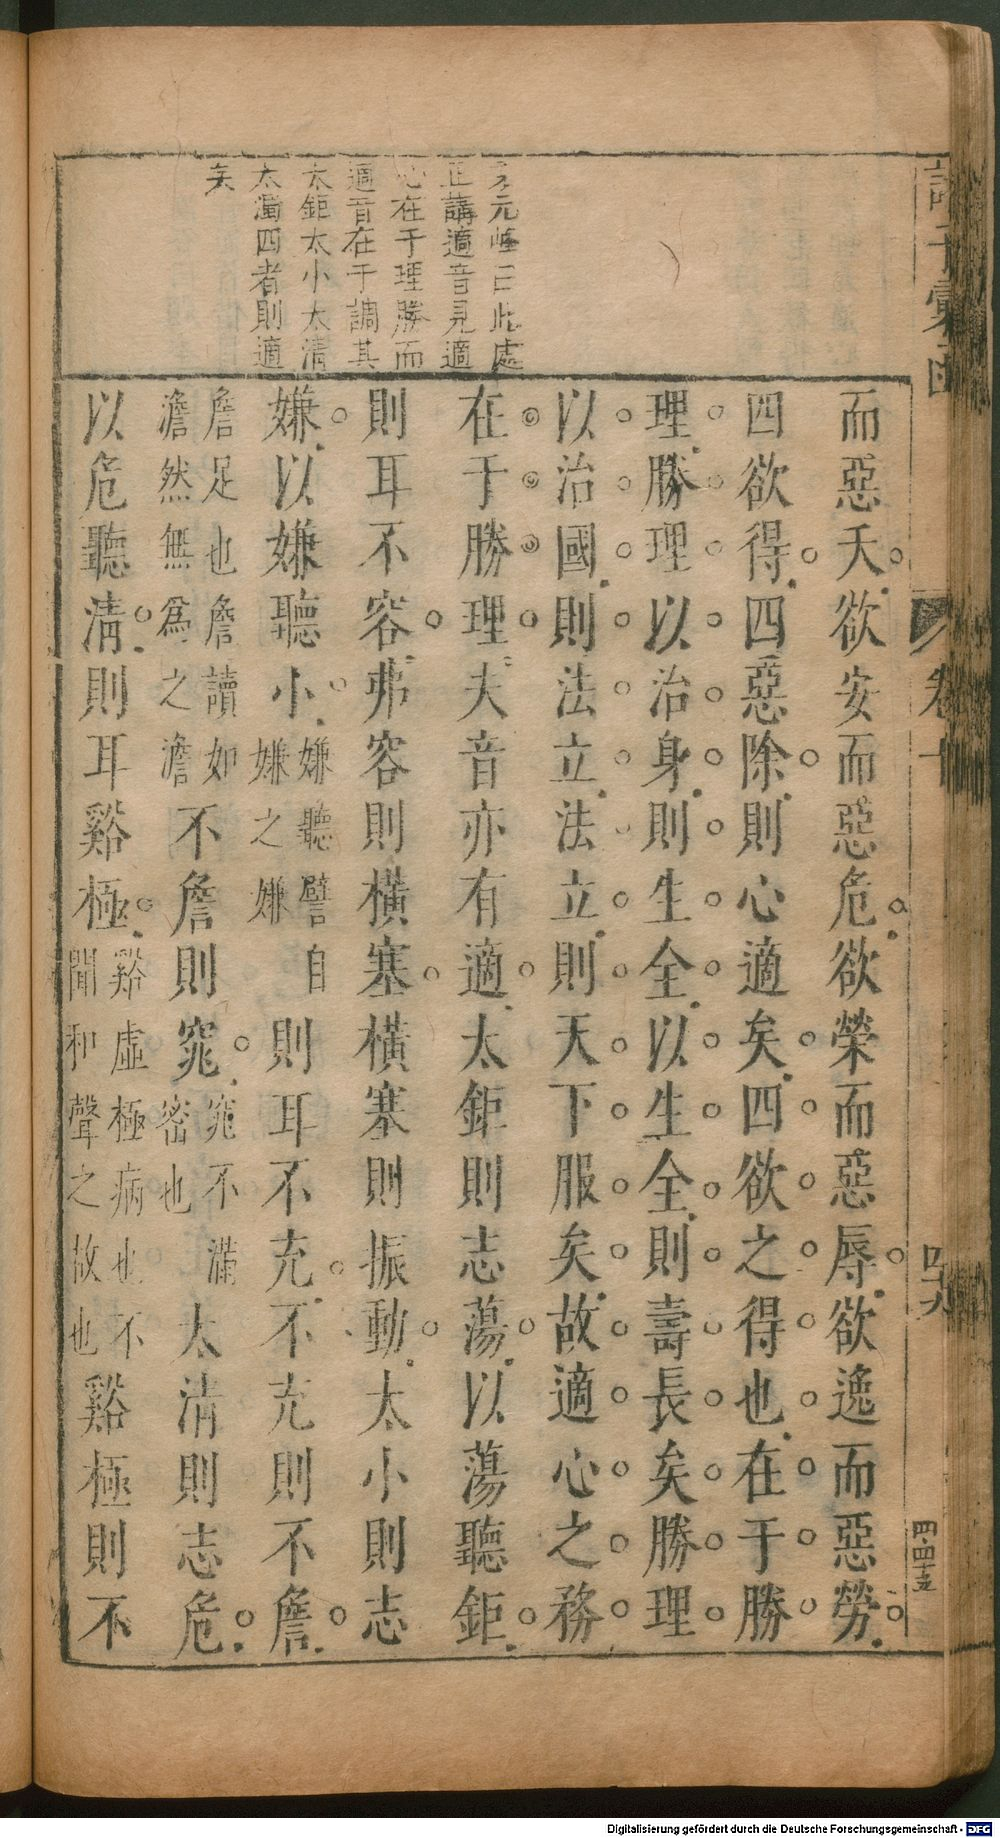 而惡夭欲安而惡危欲榮而惡辱欲逸而惡勞
四欲得四惡除則心適矣四欲之得也在于勝
理勝理以治身則生全以生全則壽長矣勝理
以治國則法立法立則天下服矣故適心之務
在于勝理夫音亦有適太鉅則志蕩以蕩聽鉅
則耳不容弗容則橫塞橫塞則振動太小則志
嫌以嫌聽小嫌聽譬自嫌之嫌則耳不充不充則不詹
詹足也詹讀如澹然無為之澹不詹則窕窕不滿密也太清則志危
以危聽清則耳谿極谿虛極病也不聞和聲之故也谿極則不
元峰曰此處
正講適音見適
心在于理勝而
適音在于調其
太鉅太小太清
太濁四者則適
矣
子彙函
卷十
四十九
四・四十五
Digitalisierung gefördert durch die Deutsche Forschungsgemeinschaft - DFG